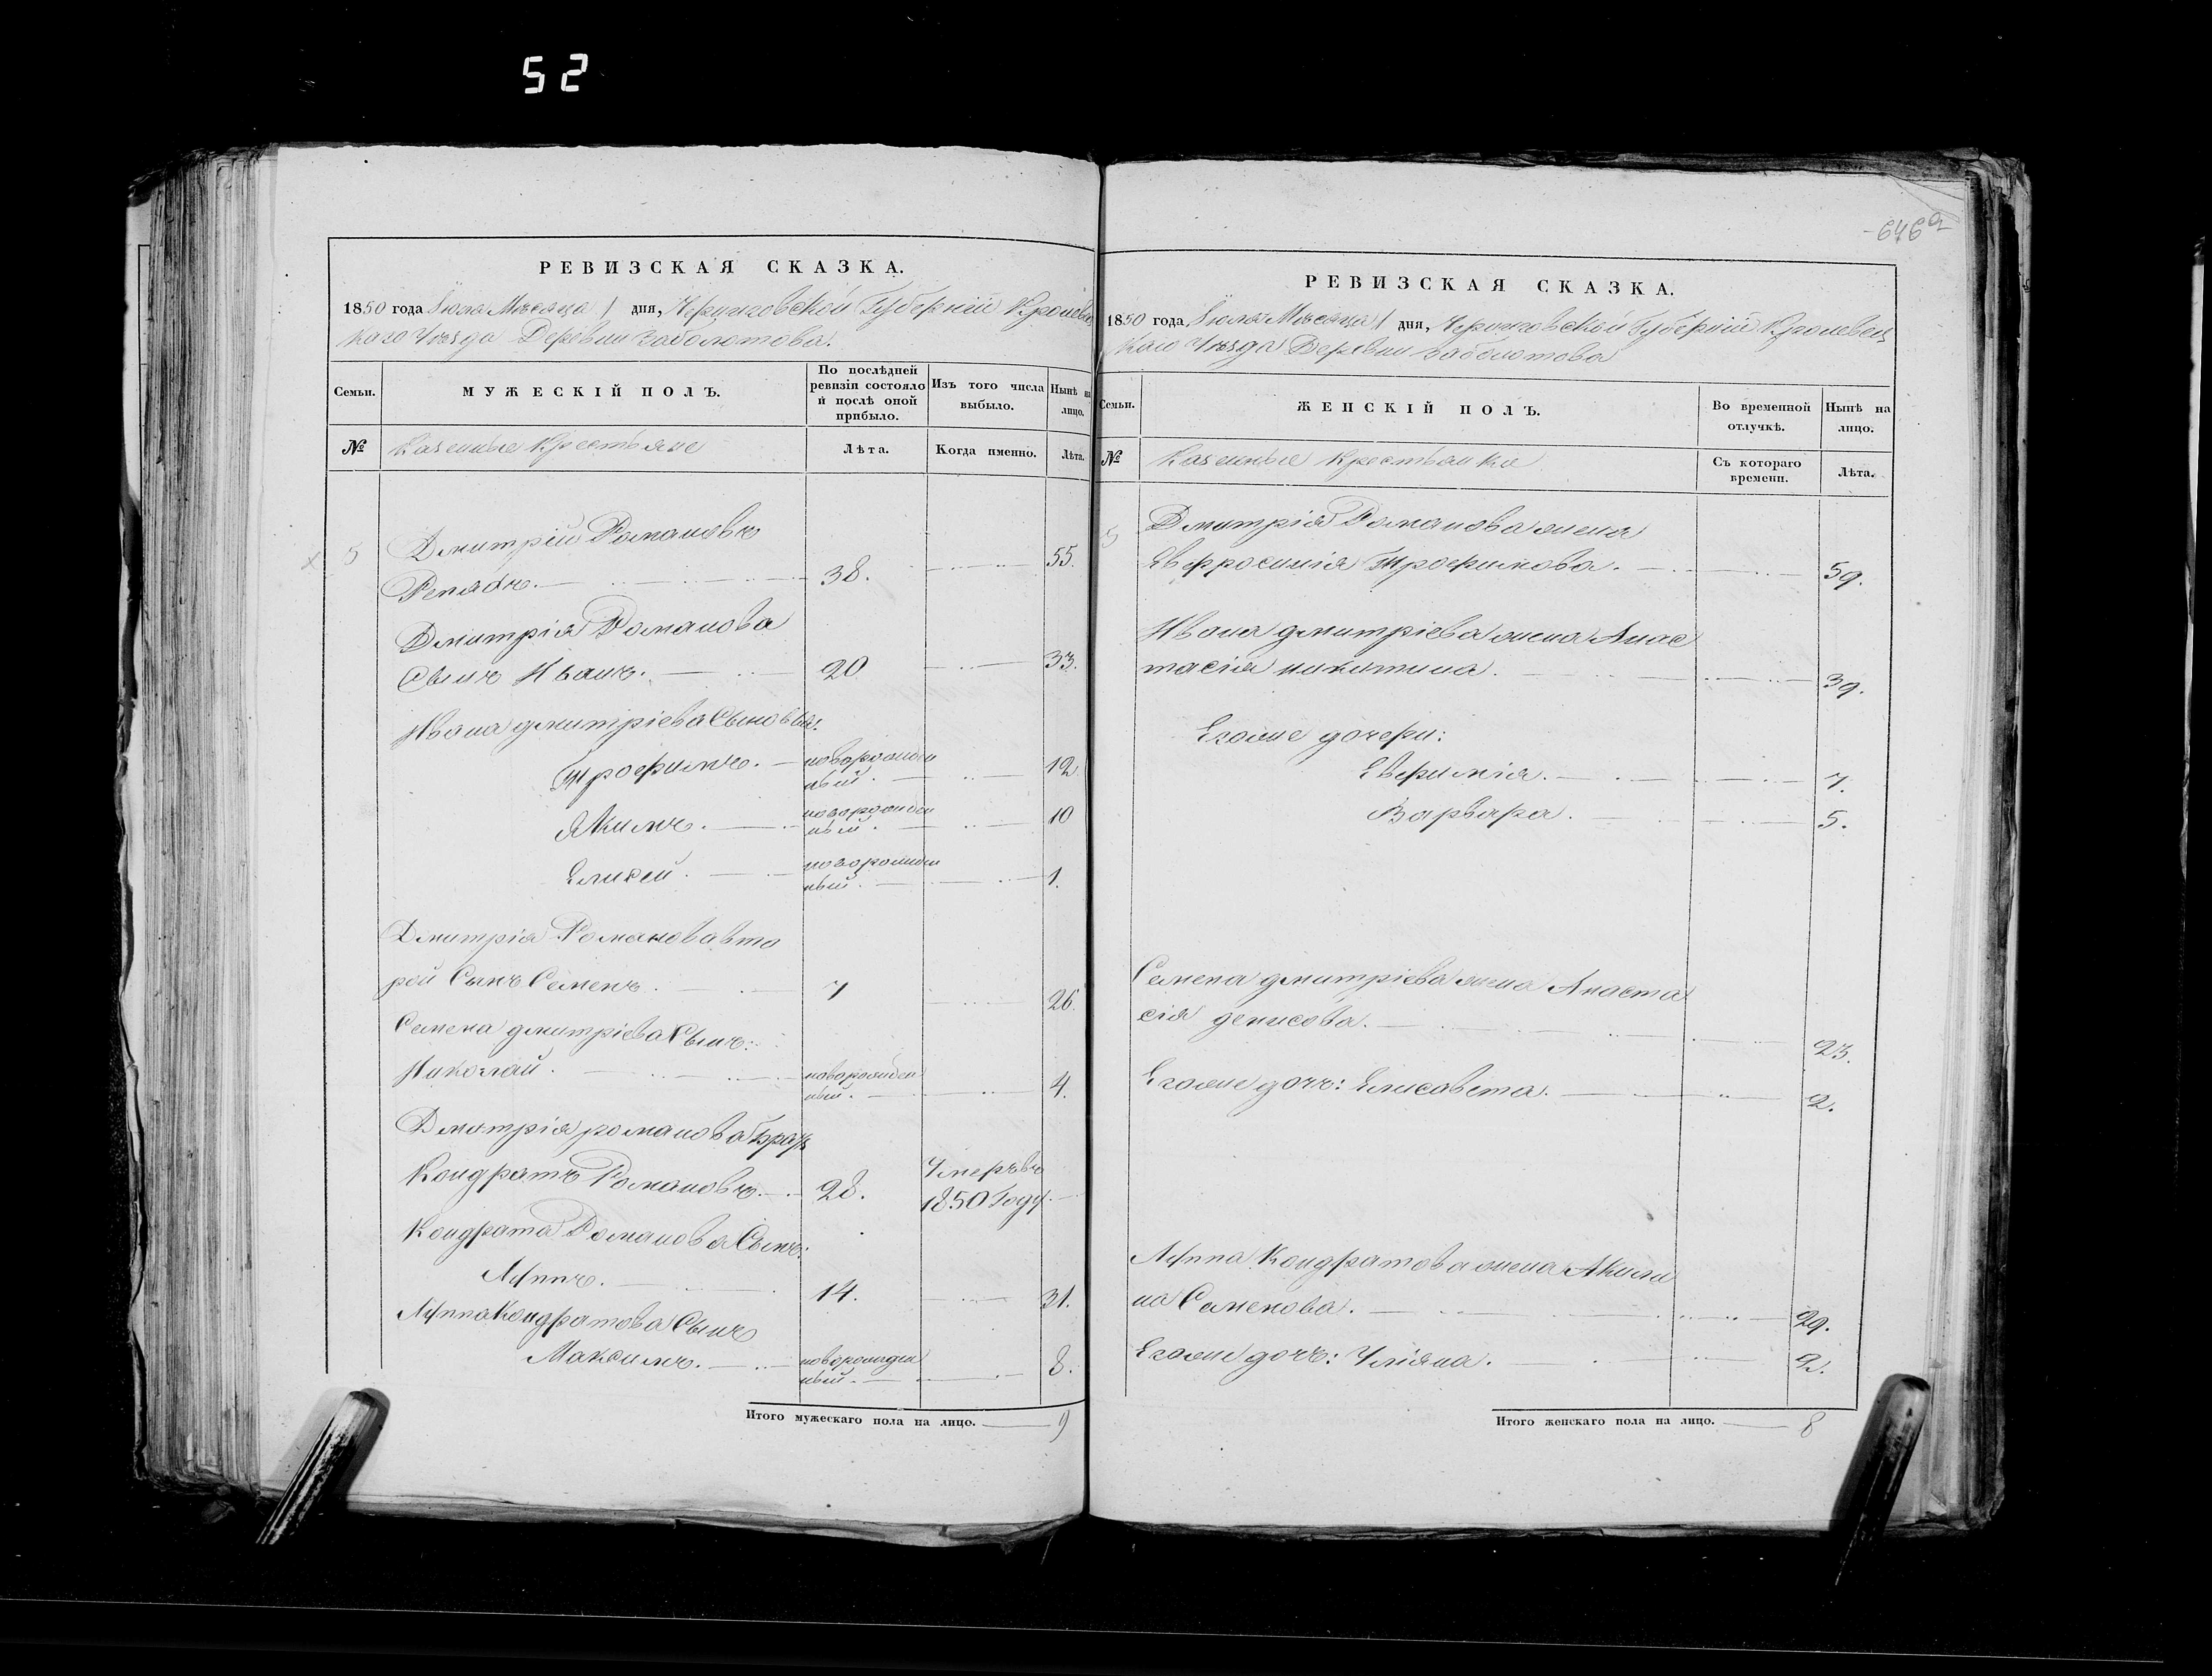 52
646 9
РЕВИЗСКАЯ СКАЗКА.
1850 года Іюля Мѣсяца 1 дня, Черниговской Губерніи Кролевец
каго Уѣзда Деревни Заболотова.
Семьи.
МУЖЕСКІЙ ПОЛЪ.
По послѣдней ревизіи состояло и послѣ оной прибыло.
Изъ того числа выбыло.
Нынѣ на лицо.
№
Казенные Крестьяне
Лѣта.
Когда именно.
Лѣта.
5 Дмитрій Романовъ
Репяхъ. 38. 55.
Дмитрія Романова
Сынъ Иванъ. 20 33.
Ивана дмитріева Сыновья:
Трофимъ. новорожден
ный. 12
Якимъ. новорожден
ный. 10
Елисей. новорожден
ный. 1.
Дмитрія Романова вто
рой Сынъ Семенъ. 7 26.
Семена дмитріева Сынъ:
Николай. новорожден
ный. 4.
Дмитрія романова братъ
Кондратъ Романовъ. 28. Умеръ въ
1850 Году.
Кондрата Романова Сынъ:
Луппъ. 14. 31.
Луппа Кондратова Сынъ
Максимъ. новорожден
ный. 8.
Итого мужескаго пола на лицо. 9
РЕВИЗСКАЯ СКАЗКА.
1850 года Іюля Мѣсяца 1 дня, Черниговской Губерніи Кролевец
каго Уѣзда Деревни Заболотова
Семьи.
ЖЕНСКІЙ ПОЛЪ.
Во временной отлучкѣ.
Нынѣ на лицо.
№
Казенные крестьянки
Съ котораго времени.
Лѣта.
5 Дмитрія Романова жена
Евфросинія Трофимова. 59.
Ивана дмитріева жена Анас
тасія никитина. 39.
Егоже дочери:
Евфимія. 7.
Варвара. 5.
Семена дмитріева жена Анаста
сія денисова. 23.
Егоже дочь: Елисавета. 2.
Луппа Кондратова жена Акили
на Семенова. 29.
Егоже дочь: Уліяна. 2.
Итого женскаго пола на лицо. 8